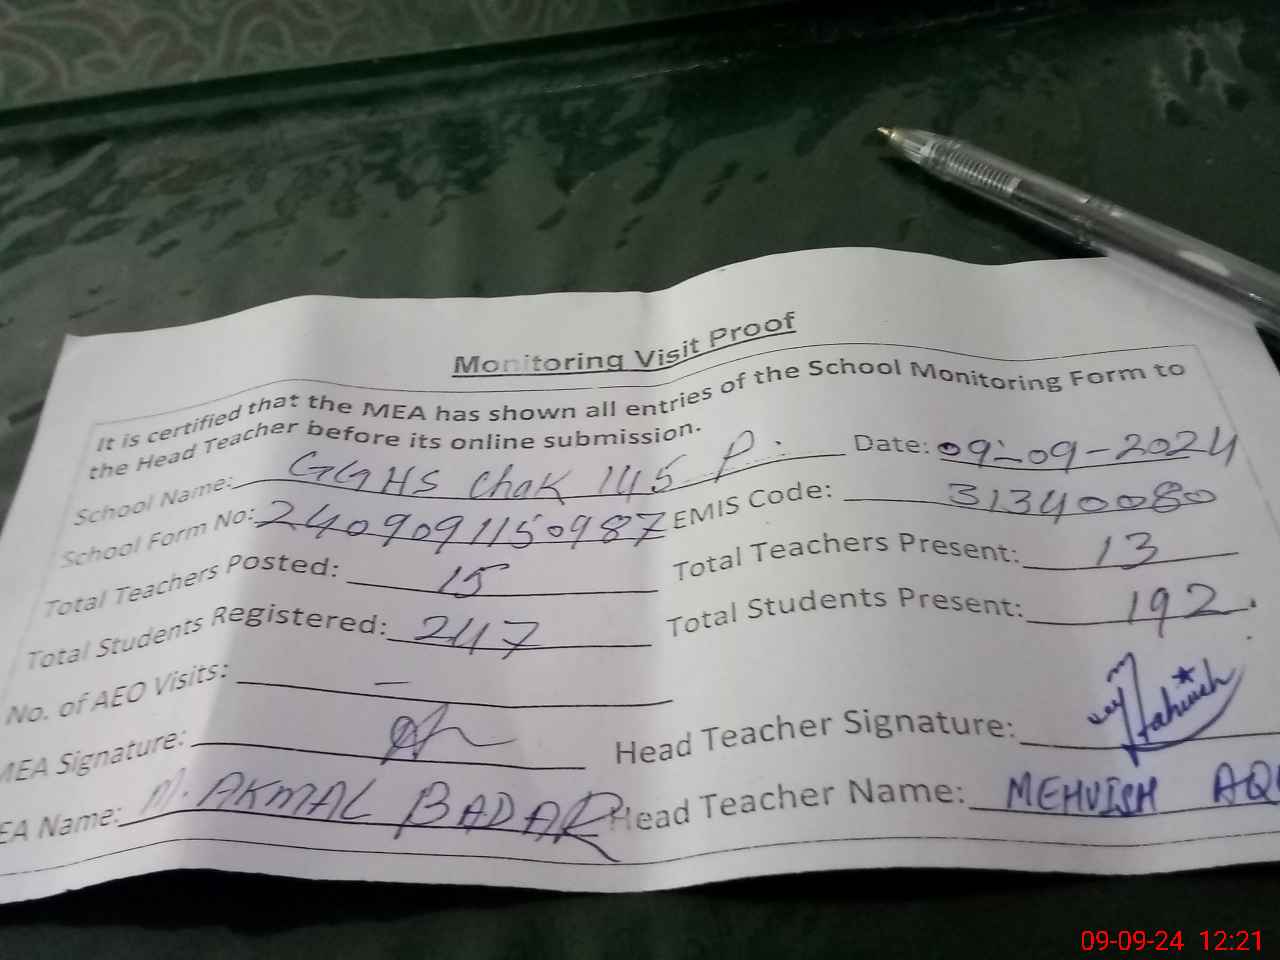 Monitoring Visit Proof
It is certified that the MEA has shown all entries of the School Monitoring Form to
the Head Teacher before its online submission.
School Name: GGHS Chak 145 P. Date: 09-09-2024
School Form No: 2409091150987 EMIS Code: 31340080
Total Teachers Posted: 15 Total Teachers Present: 13
Total Students Registered: 247 Total Students Present: 192
No. of AEO Visits: —
MEA Signature: Head Teacher Signature:
EA Name: M. AKMAL BADAR Head Teacher Name: MEHVISH AQ
09-09-24 12:21